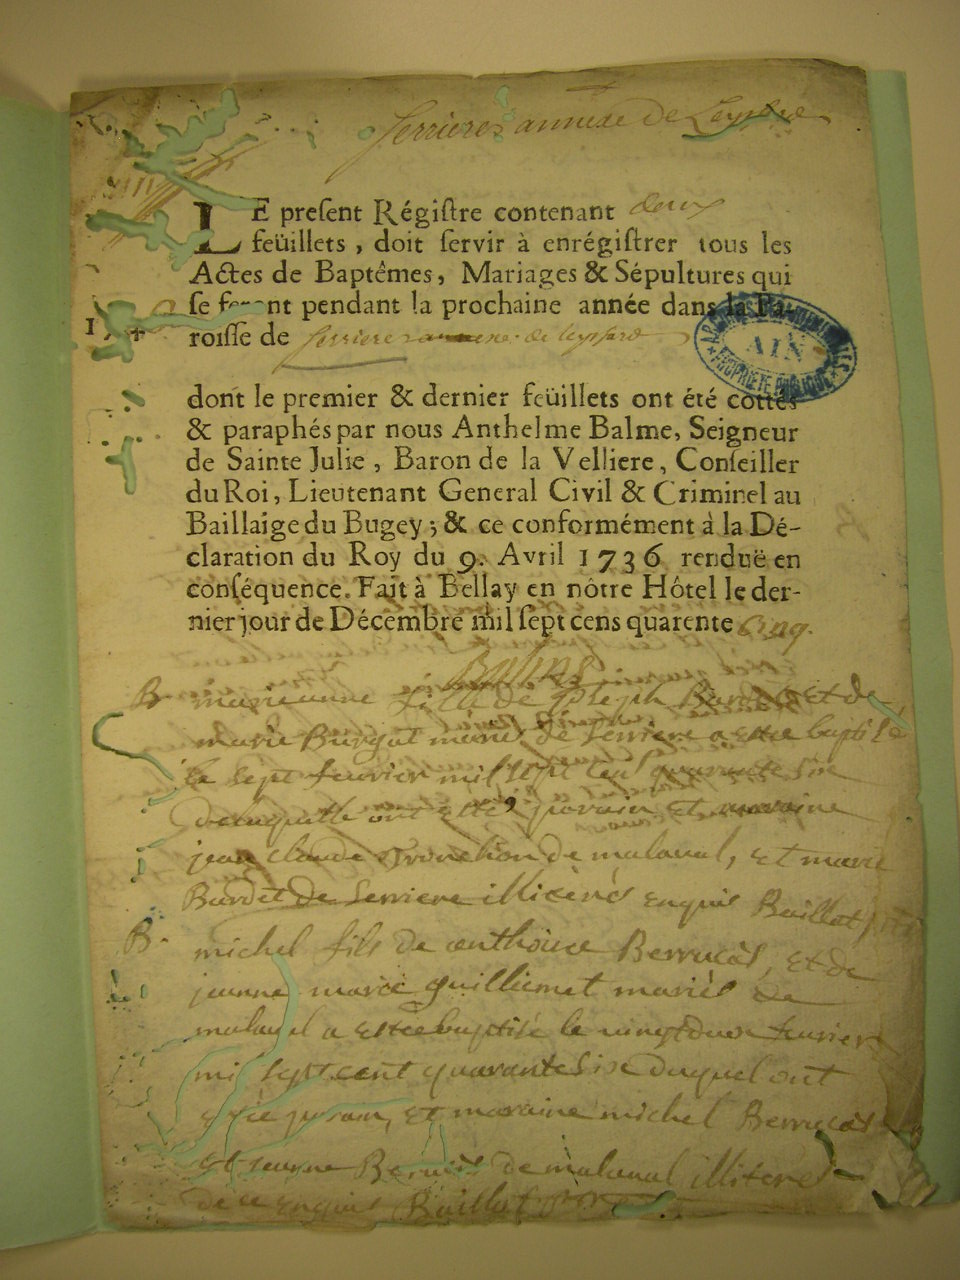 Serrieres annexe de Leyssard
LE preſent Régiſtre contenant deux
feüillets, doit ſervir à enrégiſtrer tous les
Actes de Baptêmes, Mariages & Sépultures qui
ſe feront pendant la prochaine année dans la Pa-
roiſſe de Serrieres annexe de leyssard
ARCHIVES DEPARTEMENTALES
AIN
PROPRIETE PUBLIQUE
dont le premier & dernier feüillets ont été cottés
& paraphés par nous Anthelme Balme, Seigneur
de Sainte Julie, Baron de la Velliere, Conſeiller
du Roi, Lieutenant General Civil & Criminel au
Baillaige du Bugey; & ce conformément à la Dé-
claration du Roy du 9. Avril 1736 renduë en
conſéquence. Fait à Bellay en nôtre Hôtel le der-
nier jour de Décembre mil ſept cens quarente cinq.
B marieanne fille de joseph Burdet et de
marie Burgat mariés de Serriere a este baptisée
le sept fevrier mil sept cent quarante six
de laquelle ont esté parain et maraine
jean claude de malaval, et marie
Burdet de Serriere illiterés enquis Baillat
B. michel fils de anthoine Berrucas, et de
jeanne marie guillermet mariés de
malaval a este baptisé le vingt deux fevrier
mil sept cent quarante six duquel ont
esté parain, et maraine michel Berrucas
et jeanne de malaval illiterés
de ce enquis Baillat